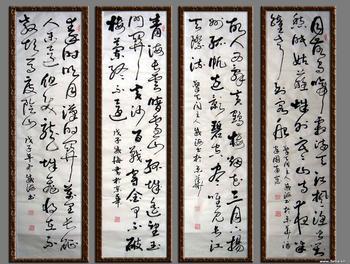 月落烏啼霜滿天江楓漁火對
愁眠姑蘇城外寒山寺夜半鐘
聲到客船
故人西辭黃鶴樓煙花三月下揚
州孤帆遠影碧空盡唯見長江
天際流
青海長雲暗雪山孤城遙望玉
門關黃沙百戰穿金甲不破
樓蘭終不還 戊子
秦時明月漢時關萬里長征
人未還但使龍城飛將在不
教胡馬度陰山 戊子年